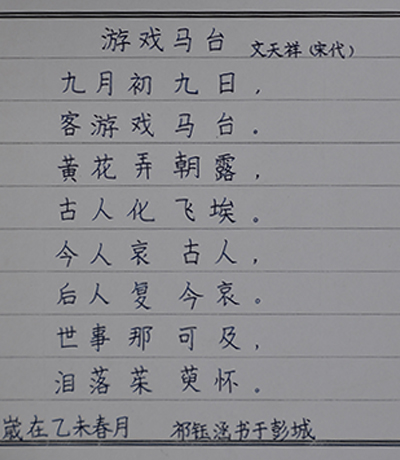 游戏马台 文天祥(宋代)
九月初九日,
客游戏马台。
黄花弄朝露,
古人化飞埃。
今人哀古人,
后人复今哀。
世事那可及,
泪落茱萸怀。
岁在乙未春月 祁钰涵书于彭城